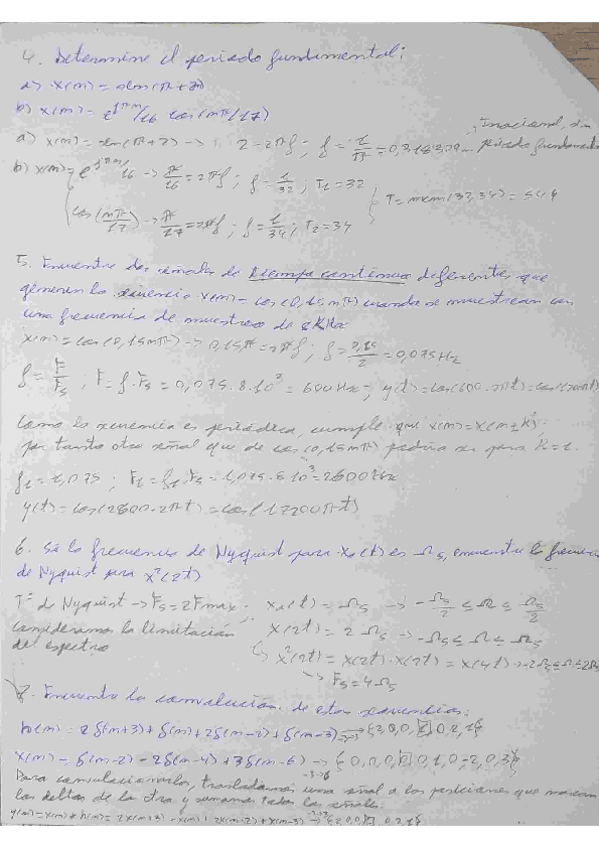 4. Determine el periodo fundamental:
a) x(n) = sen(π+2)
b) x(n) = e^jπn/16 cos(nπ/17)
a) x(n) = sen(π+2) -> 2=2πf ; f = 1/π = 0,318309... Irracional, sin periodo fundamental
b) x(n) = e^jπn/16 -> π/16 = 2πf ; f = 1/32 ; T1 = 32
cos(nπ/17) -> π/17 = 2πf ; f = 1/34 ; T2 = 34 T = mcm(32,34) = 544
5. Encuentre dos señales de tiempo continuo diferentes que
generen la secuencia x(n) = cos(0,15nπ) cuando se muestrean con
una frecuencia de muestreo de 8KHz
x(n) = cos(0,15nπ) -> 0,15π = 2πf ; f = 0,15/2 = 0,075Hz
f = F/Fs ; F = f·Fs = 0,075·8·10³ = 600Hz ; y(t) = cos(600·2πt) = cos(1200πt)
Como la secuencia es periódica, cumple que x(n) = x(n±K)
por tanto otra señal que de cos(0,15nπ) podría ser para K=1.
f1 = 1,075 ; F1 = f1·Fs = 1,075·8·10³ = 8600Hz
y(t) = cos(8600·2πt) = cos(17200πt)
6. Si la frecuencia de Nyquist para xa(t) es Ωs, encuentre la frecuencia
de Nyquist para x²(2t)
Tª de Nyquist -> Fs = 2Fmax xa(t) = Ωs -> -Ωs/2 ≤ Ω ≤ Ωs/2
Consideramos la limitación x(2t) = 2Ωs -> -Ωs ≤ Ω ≤ Ωs
del espectro x²(2t) = x(2t)·x(2t) = x(4t) -> -2Ωs ≤ Ω ≤ 2Ωs
-> Fs = 4Ωs
8. Encuentre la convolución de estas secuencias:
h(n) = 2δ(n+3) + δ(n) + 2δ(n-2) + δ(n-3) -> {2,0,0,1,0,2,1}
x(n) = δ(n-2) - 2δ(n-4) + 3δ(n-6) -> {0,0,0,0,0,1,0,-2,0,3}
Para convolucionarlas, trasladamos una señal a las posiciones que marcan
las deltas de la otra y sumamos todas las señales.
y(n) = x(n) * h(n) = 2x(n+3) + x(n) + 2x(n-2) + x(n-3)